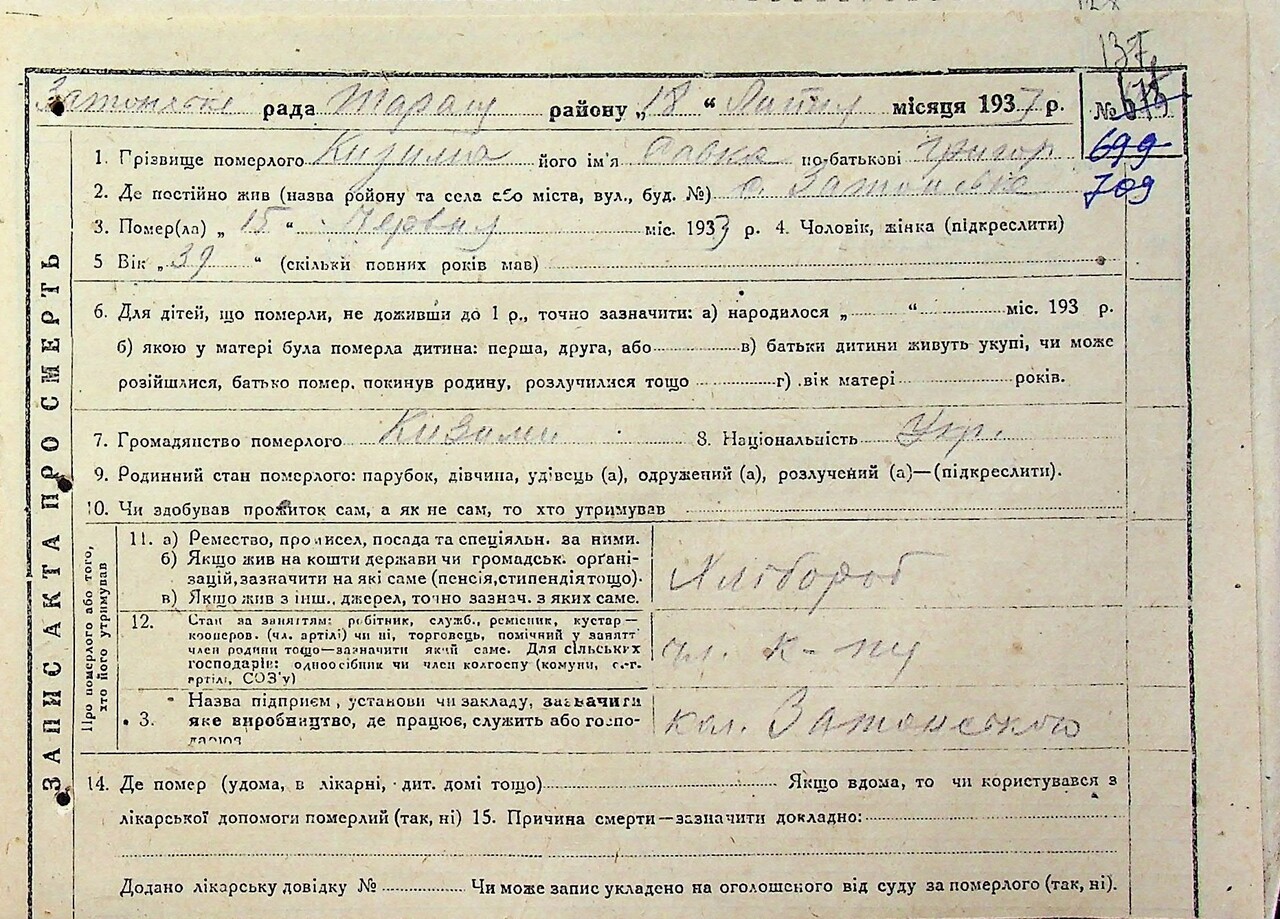 137
Затонське рада Таращ району „18“ Липня місяця 1933 р.
№ 675
1. Грізвище померлого Кизима його ім'я Савка по-батькові Григор
699
2. Де постійно жив (назва району та села або міста, вул., буд. №) с. Затонське
709
3. Помер(ла) „15“ Червня міс. 1933 р. 4. Чоловік, жінка (підкреслити)
5 Вік „39“ (скільки повних років мав)
6. Для дітей, що померли, не доживши до 1 р., точно зазначити: а) народилося „ “ міс. 193 р.
б) якою у матері була померла дитина: перша, друга, або в) батьки дитини живуть укупі, чи може
розійшлися, батько помер, покинув родину, розлучилися тощо г) вік матері років.
7. Громадянство померлого 8. Національність Укр.
9. Родинний стан померлого: парубок, дівчина, удівець (а), одружений (а), розлучений (а)—(підкреслити).
10. Чи здобував прожиток сам, а як не сам, то хто утримував
ЗАПИС АКТА ПРО СМЕРТЬ
Про померлого або того,
хто його утримував
11. а) Ремество, промисел, посада та спеціяльн. за ними.
б) Якщо жив на кошти держави чи громадськ. органі-
зацій, зазначити на які саме (пенсія, стипендія тощо).
в) Якщо жив з інш. джерел, точно зазнач. з яких саме.
Хлібороб
12. Стан за заняттям: робітник, служб., ремісник, кустар—
кооперов. (чл. артілі) чи ні, торговець, помічний у занятт
член родини тощо—зазначити який саме. Для сільських
господарів: одноосібник чи член колгоспу (комуни, с.-г.
артілі, СОЗ'у)
чл. к-пу
3. Назва підприєм, установи чи закладу, зазначити
яке виробництво, де працює, служить або госпо-
дарює
кол. Затонського
14. Де помер (удома, в лікарні, дит. домі тощо) Якщо вдома, то чи користувався з
лікарської допомоги померлий (так, ні) 15. Причина смерти—зазначити докладно:
Додано лікарську довідку № Чи може запис укладено на оголошеного від суду за померлого (так, ні).